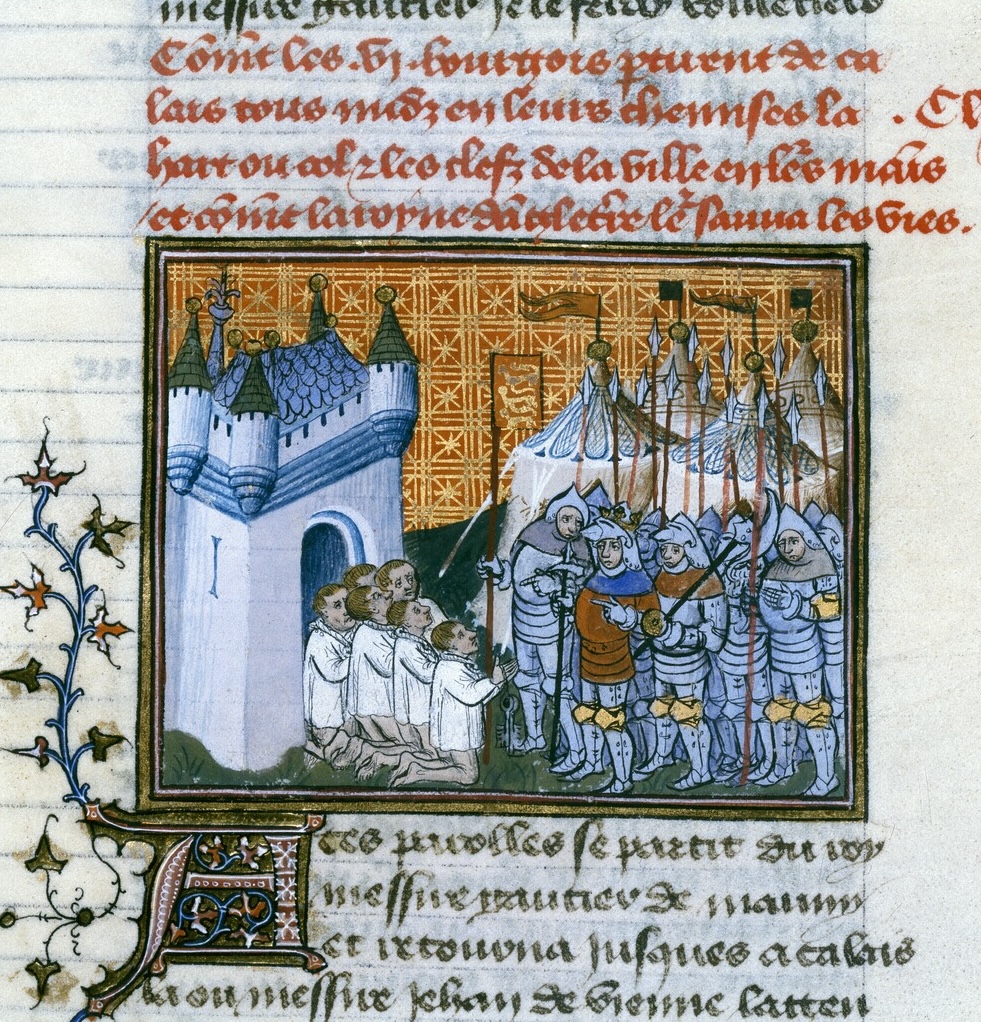 messire gautier
Com̄t les .vj. bourgois p̱tirent de ca
lais tous nudz en leurs chemises la
hart ou col ⁊ les clefz de la ville en lēs mais
et com̄t la royne dāgleterre lē sauua les vies.
. Ch
A ces parolles se partit du roy
messire gautier de mauny
et retourna jusques a calais
la ou messire jehan de vienne latten